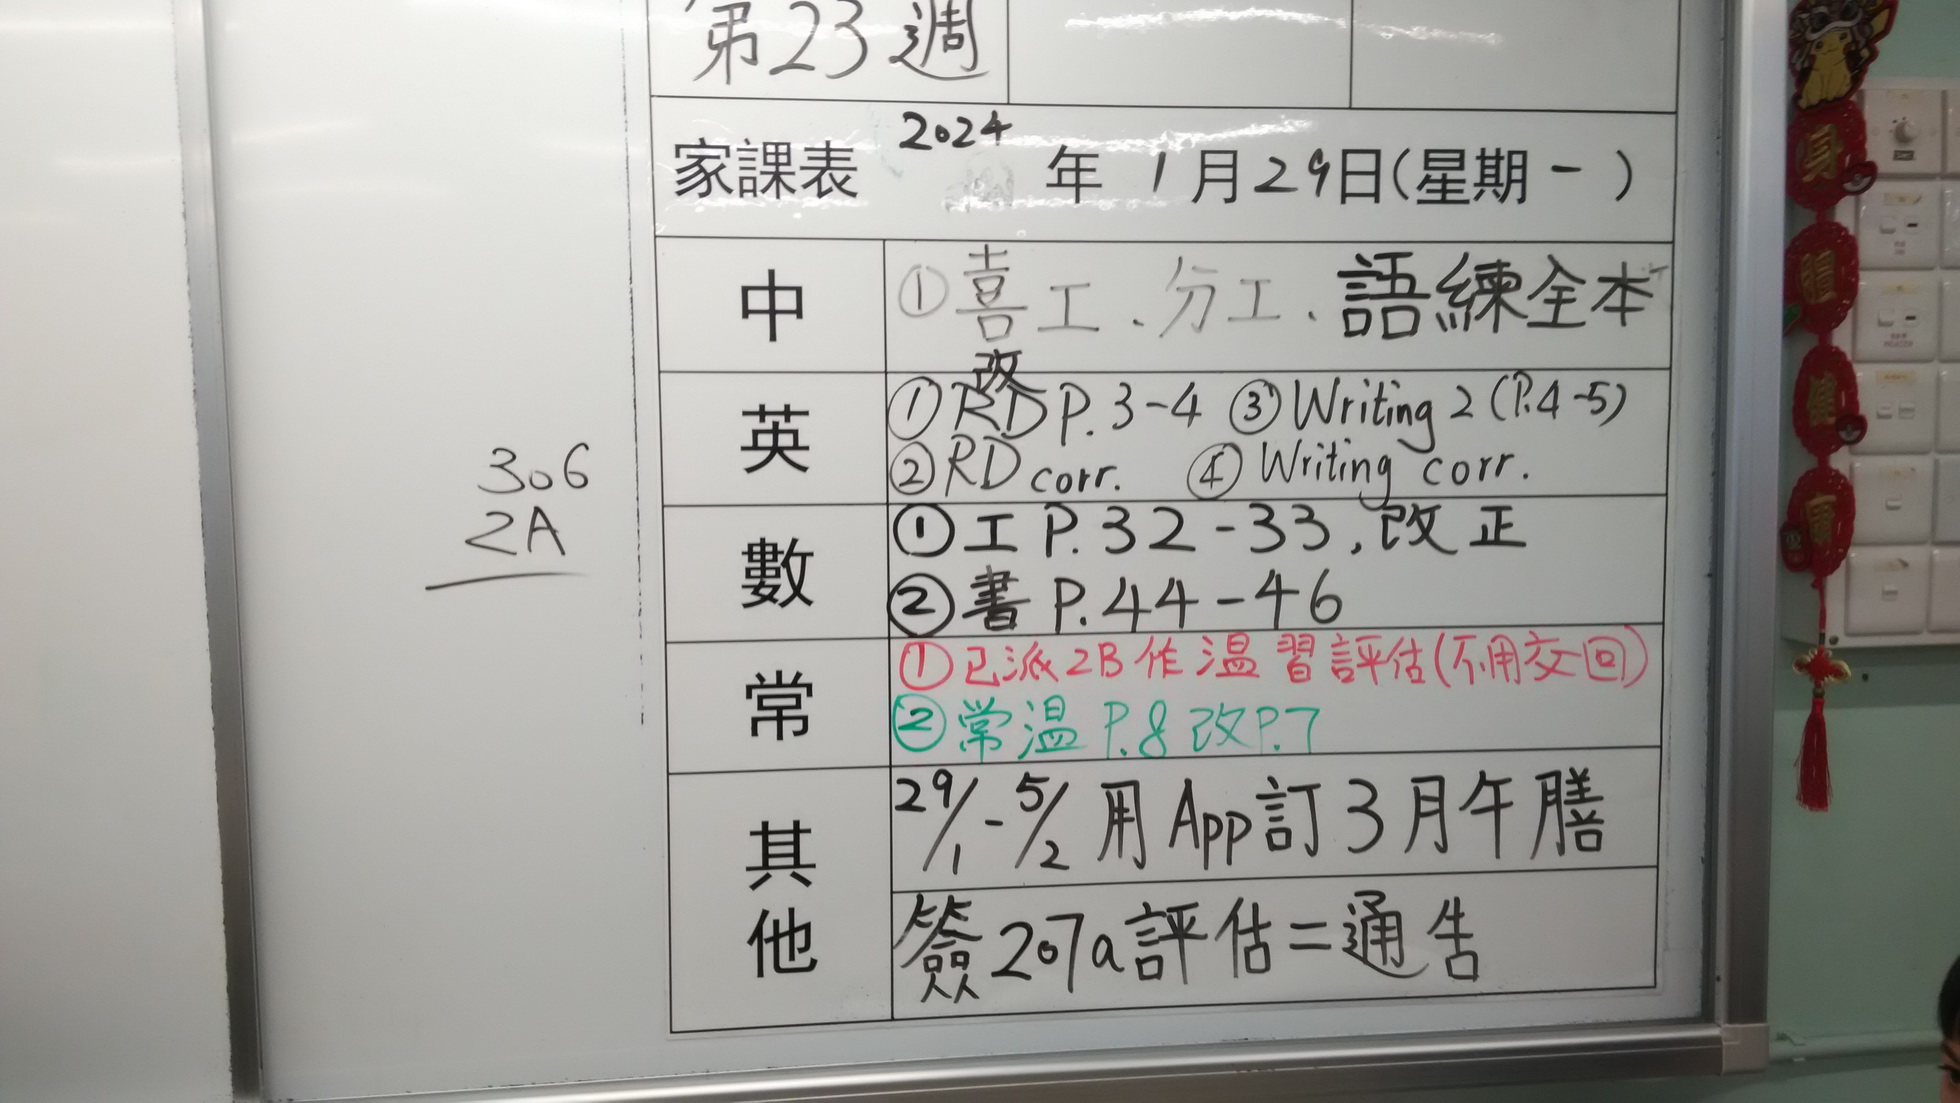 第23週
家課表 2024年1月29日(星期一)
中
①喜工、分工、語練全本
英
改
①RD P.3-4 ③Writing 2 (P.4-5)
②RD corr. ④Writing corr.
數
①工P.32-33,改正
②書P.44-46
常
①已派2B作溫習評估(不用交回)
②常溫P.8改P.7
其他
29/1-5/2用App訂3月午膳
簽207a評估二通告
306
2A
身
體
健
康